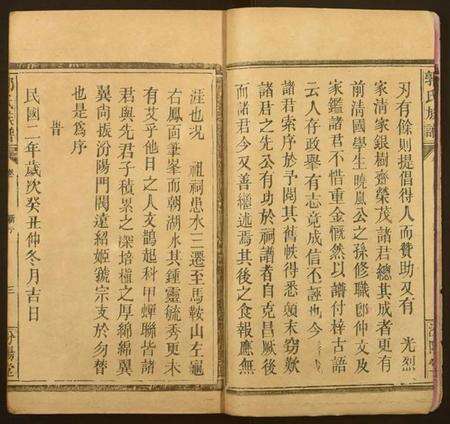 郭氏族譜
刃有餘則提倡得人而贊助又有 光烈
家清家銀樹齋榮茂諸君總其成者更有
前清國學生曉嵐公之孫修職郎仲文及
家鑑諸君不惜重金慨然以譜付梓古語
云人存政舉有志竟成信不誣也今
諸君索序於予閱其舊帙得悉顛末竊歎
諸君之先公有功於祠譜者自克昌厥後
而諸君今又善繼述焉其後之食報應無
涯也況 祖祠患水三遷至馬鞍山左龜
右鳳面筆峯而朝湖水其鍾靈毓秀更未
有艾乎他日之人文鵲起科甲蟬聯皆諸
君與先君子積累之深培植之厚綿綿翼
翼尚振汾陽門閥遠紹姬虢宗支於勿替
也是為序
旹
民國二年歲次癸丑仲冬月吉日
郭氏族譜
三
汾陽堂